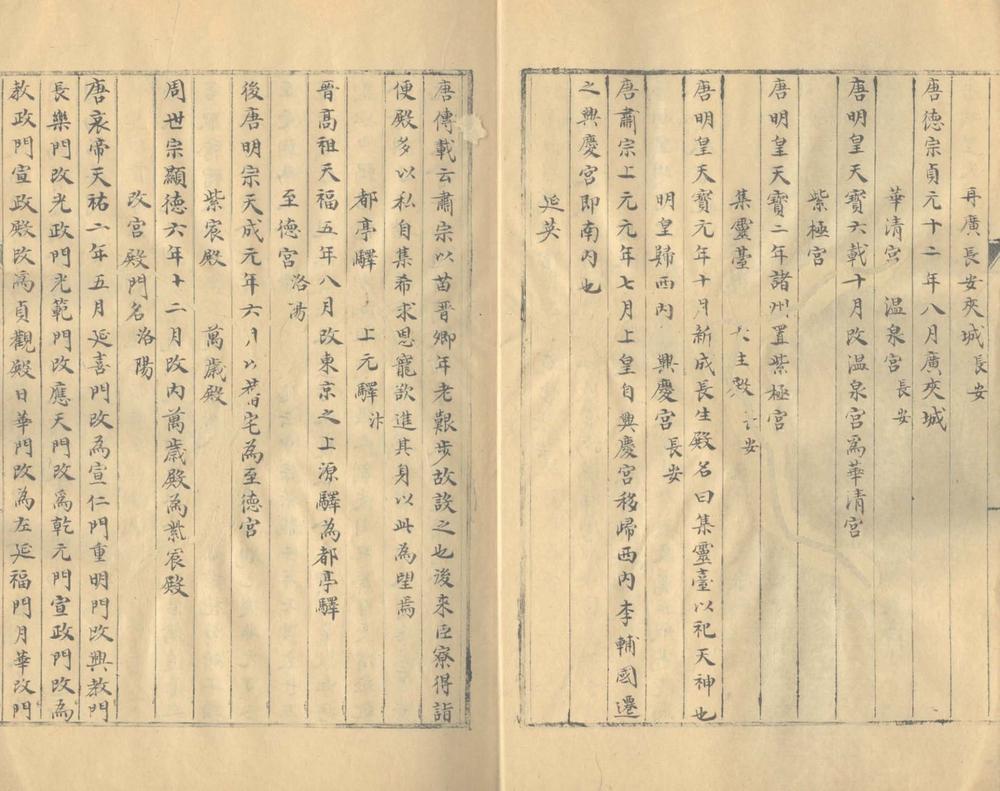 再廣長安夾城 長安
唐德宗貞元十二年八月廣夾城
華清宮 溫泉宮 長安
唐明皇天寶六載十月改温泉宮爲華清宮
紫極宮
唐明皇天寶二年諸州置紫極宮
集靈臺
唐明皇天寳元年十月新成長生殿名曰集靈臺以祀天神也
明皇歸西内 興慶宮 長安
唐肅宗上元元年七月上皇自興慶宮移歸西内李輔國遷
之興慶宮即南内也
延英
唐傳載云肅宗以苗晉卿年老艱步故設之也後來臣寮得詣
便殿多以私自集希求恩寵欲進其身以此為望焉
都亭驛 上元驛 汴
晉髙祖天福五年八月改東京之上源驛為都亭驛
至德宮 洛陽
後唐明宗天成元年六月以舊宅為至德宮
紫宸殿 萬歲殿
周世宗顯德六年十二月改内萬歲殿為紫宸殿
改宮殿門名 洛陽
唐哀帝天祐二年五月延喜門改為宣仁門重明門改興教門
長樂門改光政門光範門改應天門改爲乾元門宣政門改為
敷政門宣政殿改爲貞觀殿日華門改為左延福門月華改門